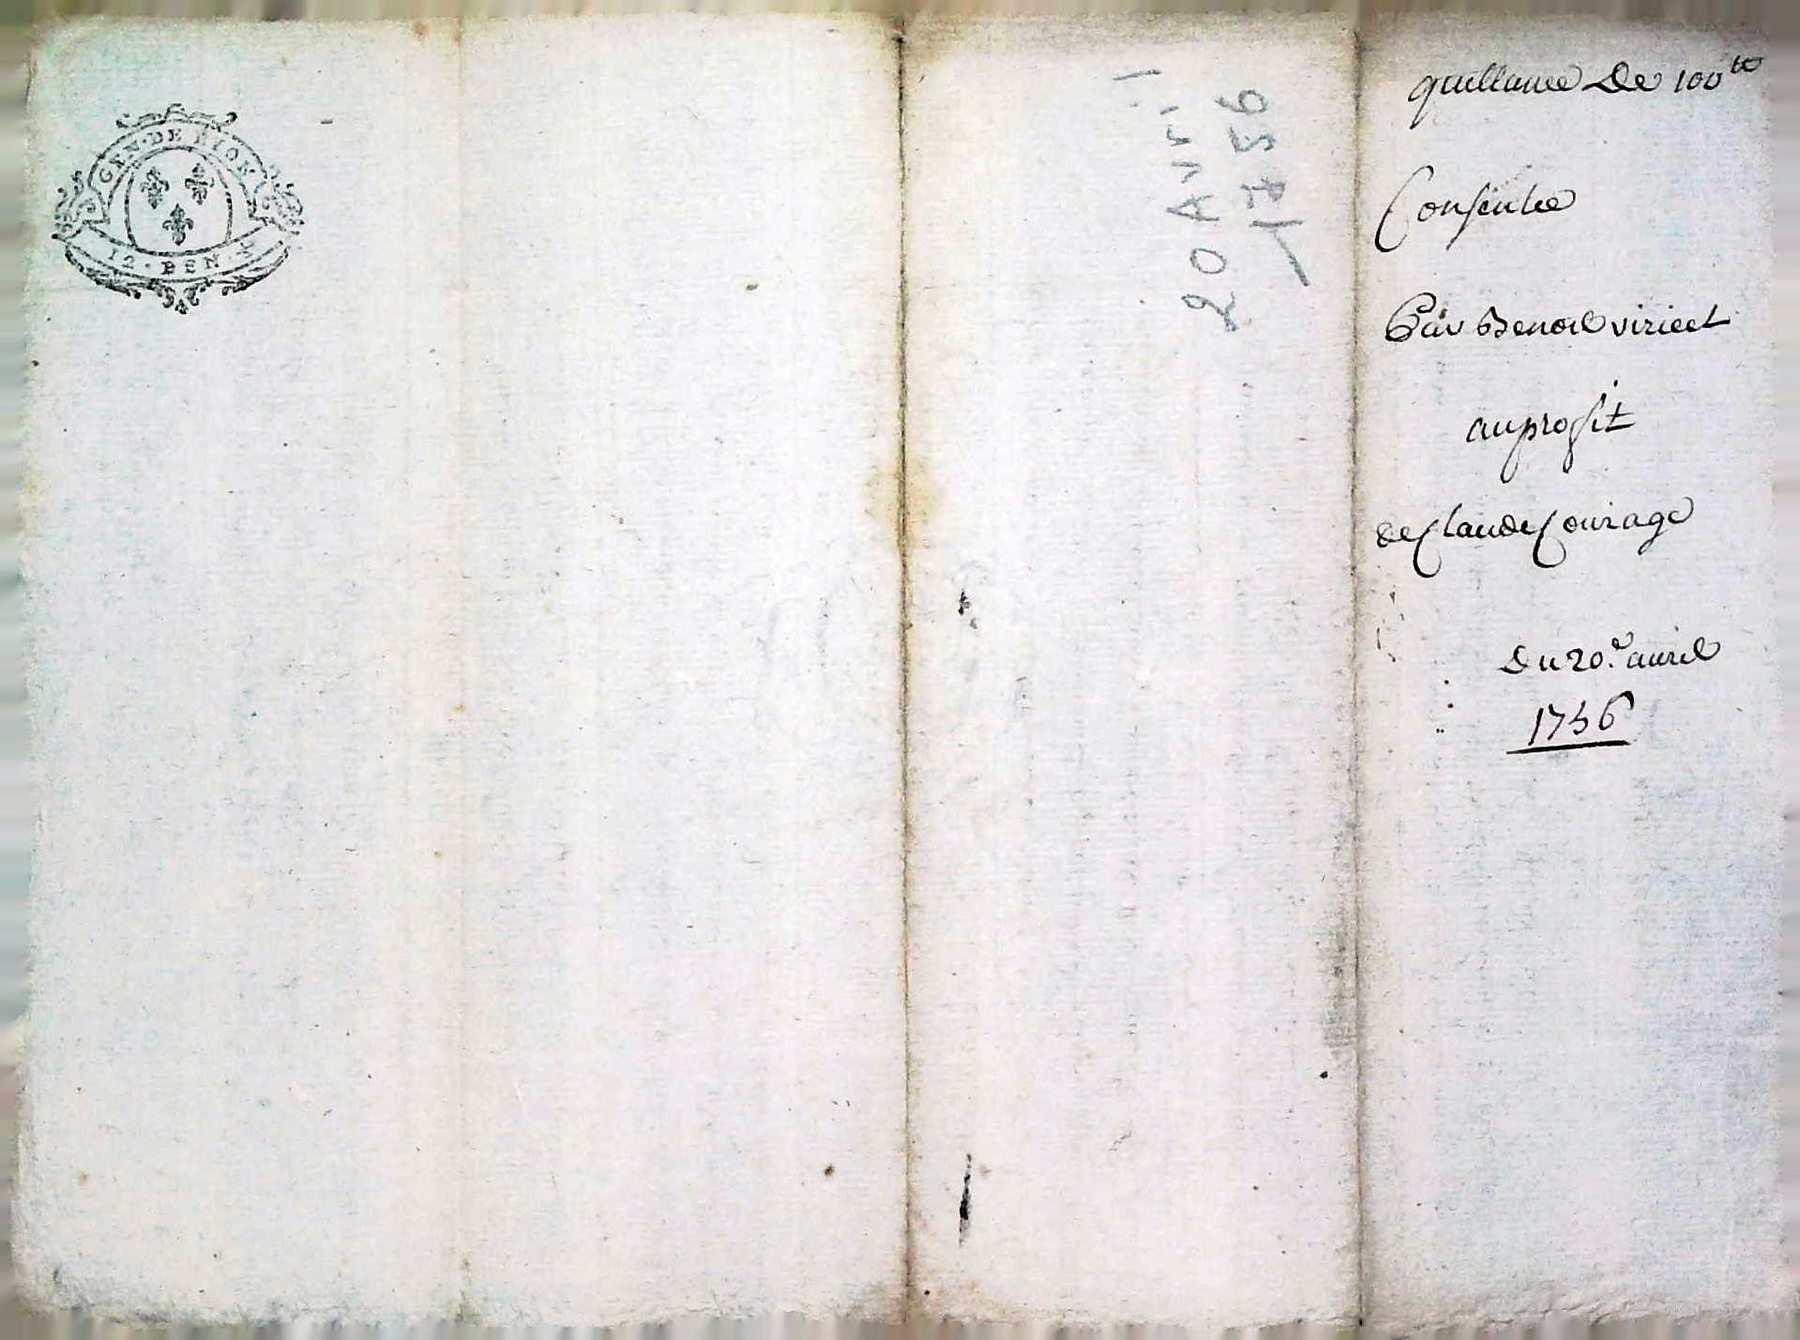 GEN·DE RIOM
12·DEN·4
20 Avril
1756
quittance De 100 tt
Consentie
Par Benoit viricel
au profit
de Claude Courage
Du 20.e auril
1756